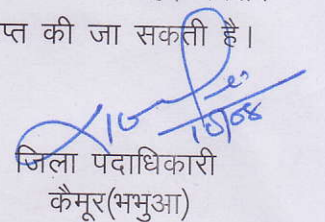 प्त की जा सकती है।
जिला पदाधिकारी
कैमूर(भभुआ)